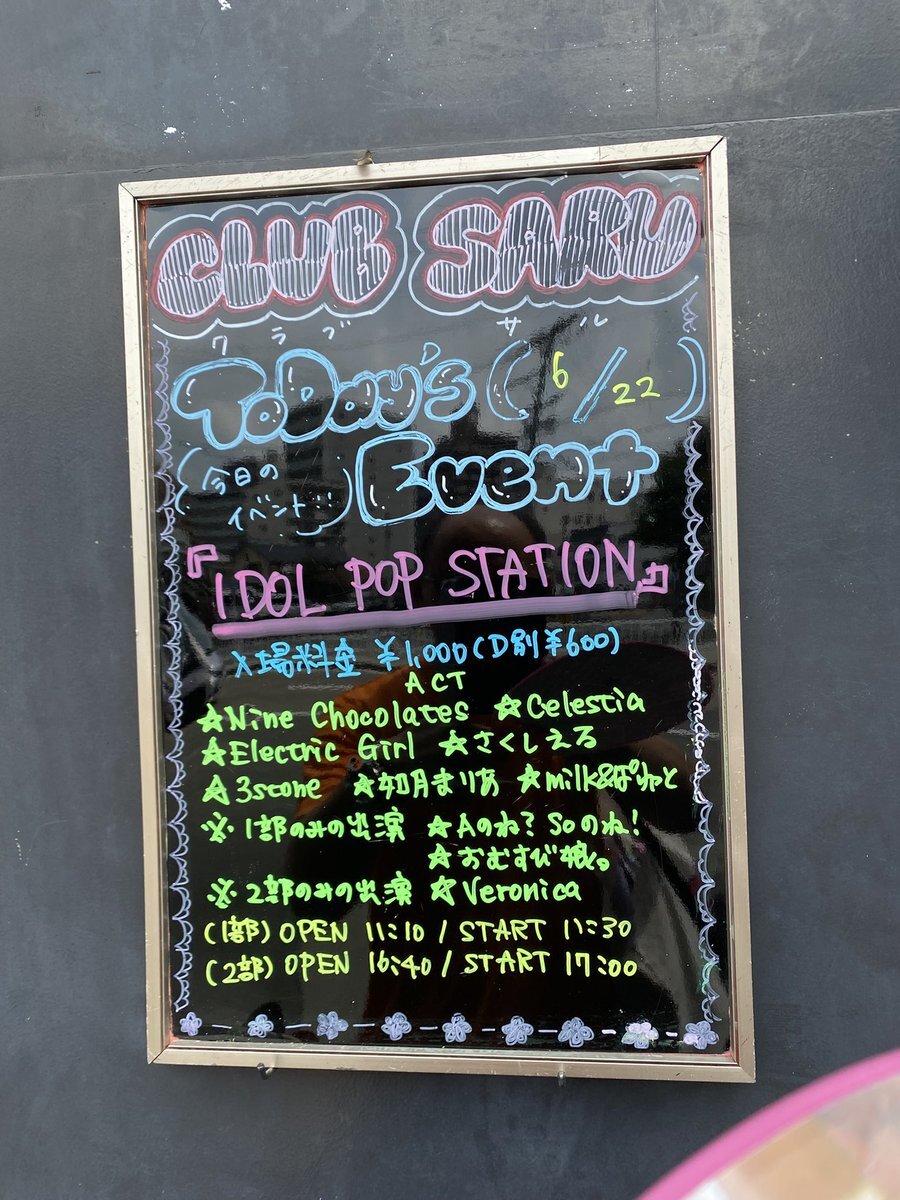 CLUB SARU
クラブ サル
ToDay's (6/22)
(今日のイベント) Event
『IDOL POP STATION』
入場料金 ¥1,000(D別¥600)
ACT
☆Nine Chocolates ☆Celestia
☆Electric Girl ☆さくしえる
☆3scone ☆如月まりあ ☆milk&ぽりっと
※1部のみの出演 ☆Aのね?Soのね!
☆おむすび娘。
※2部のみの出演 ☆Veronica
(1部) OPEN 11:10 / START 11:30
(2部) OPEN 16:40 / START 17:00